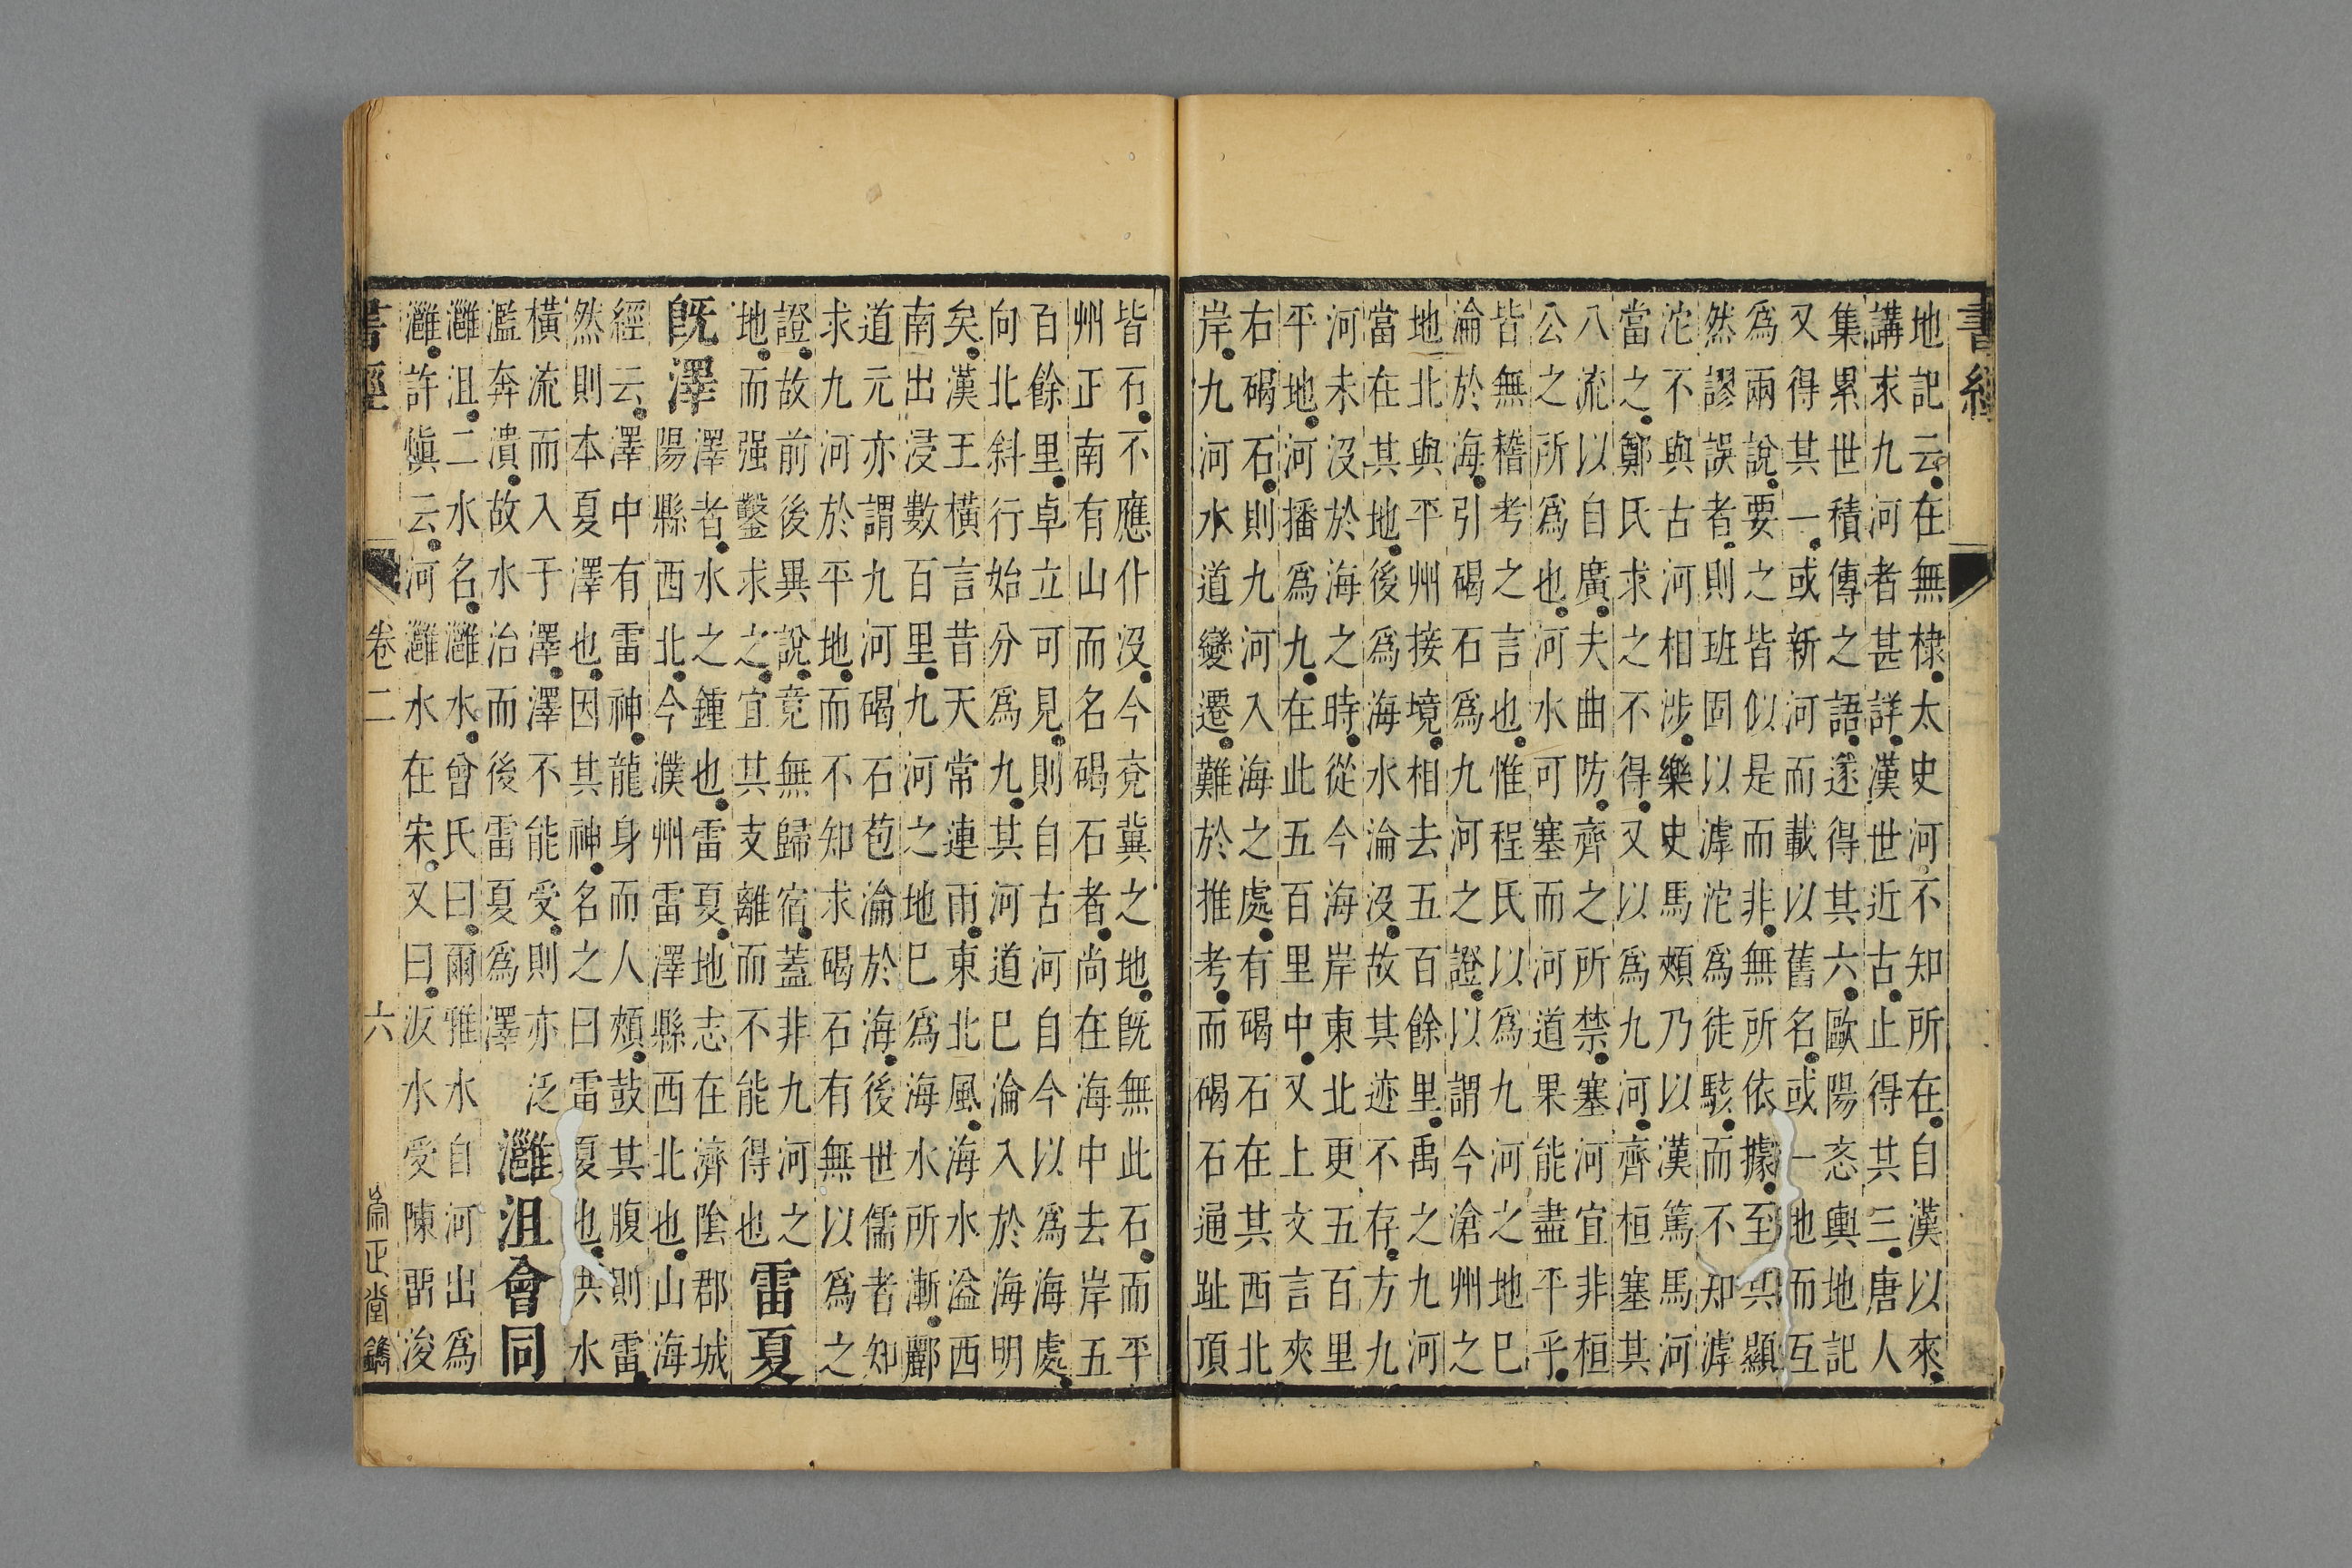 書經
地記云在無棣太史河不知所在自漢以來
講求九河者甚詳漢世近古止得其三唐人
集累世積傳之語遂得其六歐陽忞輿地記
又得其一或新河而載以舊名或一地而互
為兩說要之皆似是而非無所依據至其顯
然謬誤者則班固以滹沱為徒駭而不知滹
沱不與古河相涉樂史馬頰乃以漢篤馬河
當之鄭氏求之不得又以為九河齊桓塞其
八流以自廣夫曲防齊之所禁塞河宜非桓
公之所為也河水可塞而河道果能盡平乎
皆無稽考之言也惟程氏以為九河之地已
淪於海引碣石為九河之證以謂今滄州之
地北與平州接境相去五百餘里禹之九河
當在其地後為海水淪沒故其迹不存方九
河未沒於海之時從今海岸東北更五百里
平地河播為九在此五百里中又上文言夾
右碣石則九河入海之處有碣石在其西北
岸九河水道變遷難於推考而碣石通趾頂
皆石不應仆沒今兗冀之地既無此石而平
州正南有山而名碣石者尚在海中去岸五
百餘里卓立可見則自古河自今以為海處
向北斜行始分為九其河道已淪入於海明
矣漢王橫言昔天常連雨東北風海水溢西
南出浸數百里九河之地已為海水所漸酈
道元亦謂九河碣石苞淪於海後世儒者知
求九河於平地而不知求碣石有無以為之
證故前後異說竟無歸宿蓋非九河之
地而强鑿求之宜其支離而不能得也
雷夏
既澤
澤者水之鍾也雷夏地志在濟陰郡城
陽縣西北今濮州雷澤縣西北也山海
經云澤中有雷神龍身而人頰鼓其腹則雷
然則本夏澤也因其神名之曰雷夏也洪水
橫流而入于澤澤不能受則亦泛
濫奔潰故水治而後雷夏為澤
灉沮會同
灉沮二水名灉水曾氏曰爾雅水自河出為
灉許慎云河灉水在宋又曰汳水受陳留浚
書經 卷二 六 崇正堂鐫